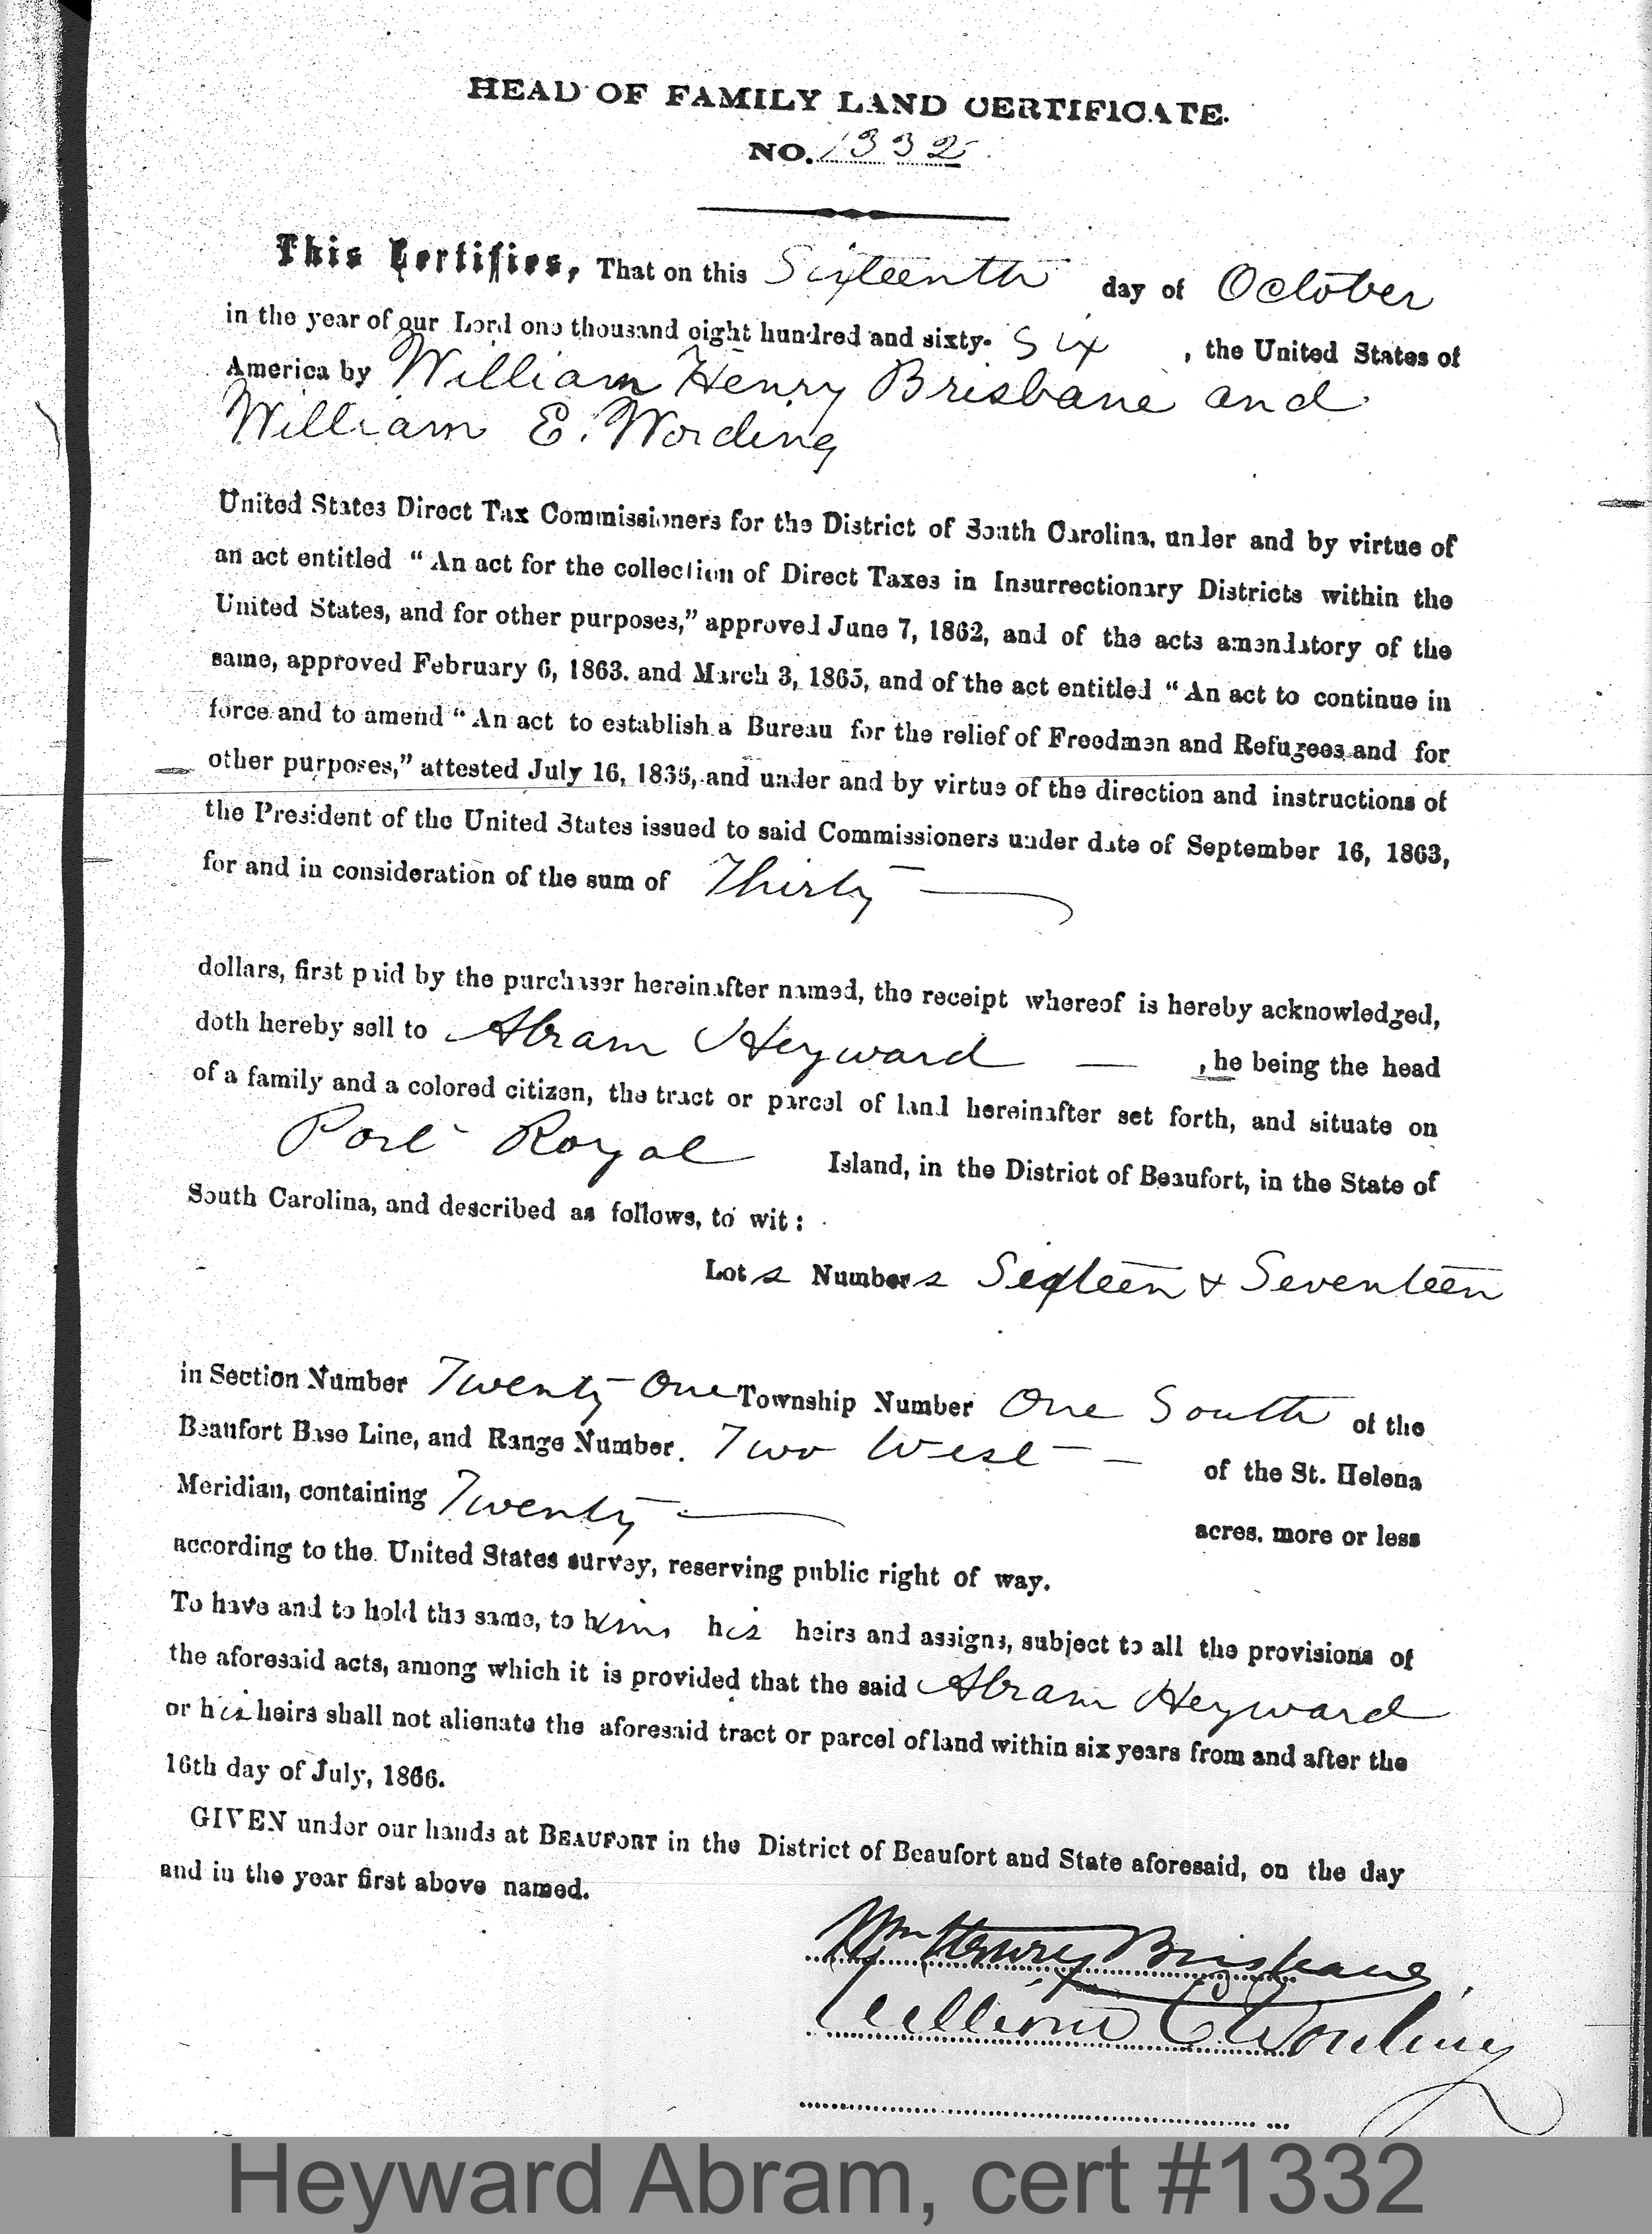 HEAD OF FAMILY LAND CERTIFICATE.
NO. 1332
This Certifies, That on this Sixteenth day of October
in the year of our Lord one thousand eight hundred and sixty-Six, the United States of
America by William Henry Brisbane and
William E. Wording
United States Direct Tax Commissioners for the District of South Carolina, under and by virtue of
an act entitled “An act for the collection of Direct Taxes in Insurrectionary Districts within the
United States, and for other purposes,” approved June 7, 1862, and of the acts amendatory of the
same, approved February 6, 1863. and March 3, 1865, and of the act entitled “An act to continue in
force and to amend “An act to establish a Bureau for the relief of Freedmen and Refugees and for
other purposes,” attested July 16, 1866, and under and by virtue of the direction and instructions of
the President of the United States issued to said Commissioners under date of September 16, 1863,
for and in consideration of the sum of Thirty —
dollars, first paid by the purchaser hereinafter named, the receipt whereof is hereby acknowledged,
doth hereby sell to Abram Heyward — , he being the head
of a family and a colored citizen, the tract or parcel of land hereinafter set forth, and situate on
Port Royal Island, in the District of Beaufort, in the State of
South Carolina, and described as follows, to wit:
Lots Numbers Sixteen & Seventeen
in Section Number Twenty One Township Number One South of the
Beaufort Base Line, and Range Number. Two West — of the St. Helena
Meridian, containing Twenty — acres. more or less
according to the United States survey, reserving public right of way.
To have and to hold the same, to him his heirs and assigns, subject to all the provisions of
the aforesaid acts, among which it is provided that the said Abram Heyward
or his heirs shall not alienate the aforesaid tract or parcel of land within six years from and after the
16th day of July, 1866.
GIVEN under our hands at BEAUFORT in the District of Beaufort and State aforesaid, on the day
and in the year first above named.
Wm Henry Brisbane
William E Wording
Heyward Abram, cert #1332